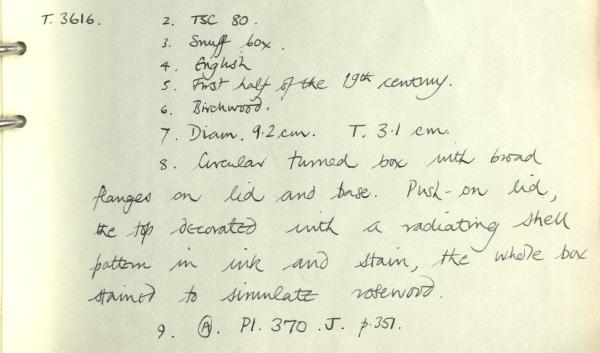 T. 3616. 2. TSC 80.
3. Snuff box.
4. English
5. First half of the 19th century.
6. Birchwood.
7. Diam. 9.2 cm. T. 3.1 cm.
8. Circular turned box with broad
flanges on lid and base. Push-on lid,
the top decorated with a radiating shell
pattern in ink and stain, the whole box
stained to simulate rosewood.
9. Ⓐ. Pl. 370. J. p.351.